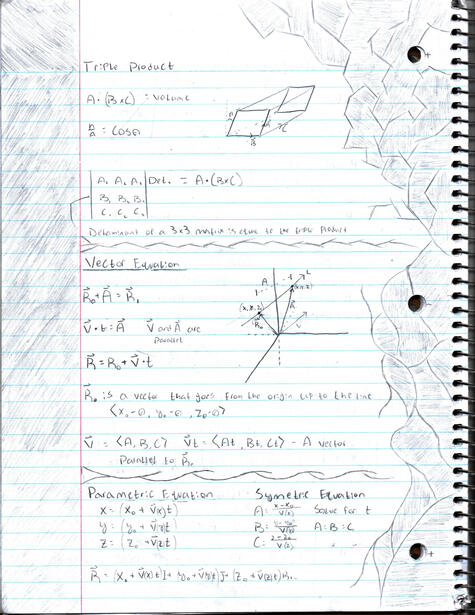 Triple Product
A · (B×C) = Volume
h/a = cosθ
A
B
C
| A₁ A₂ A₃ | Det. = A·(B×C)
B₁ B₂ B₃
C₁ C₂ C₃
Determinant of a 3×3 matrix is equal to the triple product
Vector Equation
A
L
R⃗₀ + A⃗ = R⃗₁
V⃗·t = A⃗ V⃗ and A⃗ are
Parallel
R⃗ = R₀ + V⃗·t
R⃗₀ is a vector that goes from the origin up to the line
⟨x₀-0, y₀-0, z₀-0⟩
V⃗ = ⟨A, B, C⟩ V⃗t = ⟨At, Bt, Ct⟩ - A vector
Parallel to
Parametric Equation
Symetric Equation
X = (X₀ + V⃗(x)t)
A = x-x₀/V(x) Solve for t
Y = (y₀ + V⃗(y)t)
B = y-y₀/V(y) A=B=C
Z = (Z₀ + V⃗(z)t)
C = z-z₀/V(z)
R⃗ = (X₀ + V⃗(x)t)I + (y₀ + V⃗(y)t)J + (Z₀ + V⃗(z)t)K